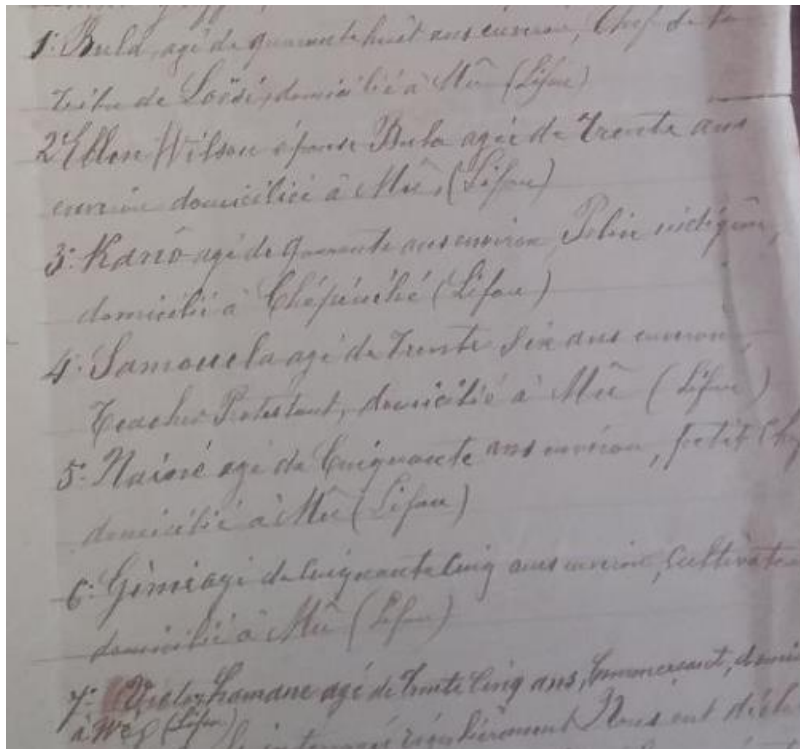 1º Bula, agé de quarante huit ans environ, Chef de la
tribu de Loëssi, domicilié à Mû (Lifou)
2º Ellen Wilson épouse Bula agée de trente ans
environ domiciliée à Mû, (Lifou)
3º Kanô agé de quarante ans environ, indigène,
domicilié à Chépénéhé (Lifou)
4º Samouela agé de trente six ans environ,
Teacher Protestant, domicilié à Mû (Lifou)
5º Naisié agé de Cinquante ans environ, petit Chef
domicilié à Mû (Lifou)
6º Gimi agé de cinquante cinq ans environ, cultivate
domicilié à Mû (Lifou)
7º agé de trente Cinq ans, Commerçant, domi
à Wé (Lifou)
Nous ont décla